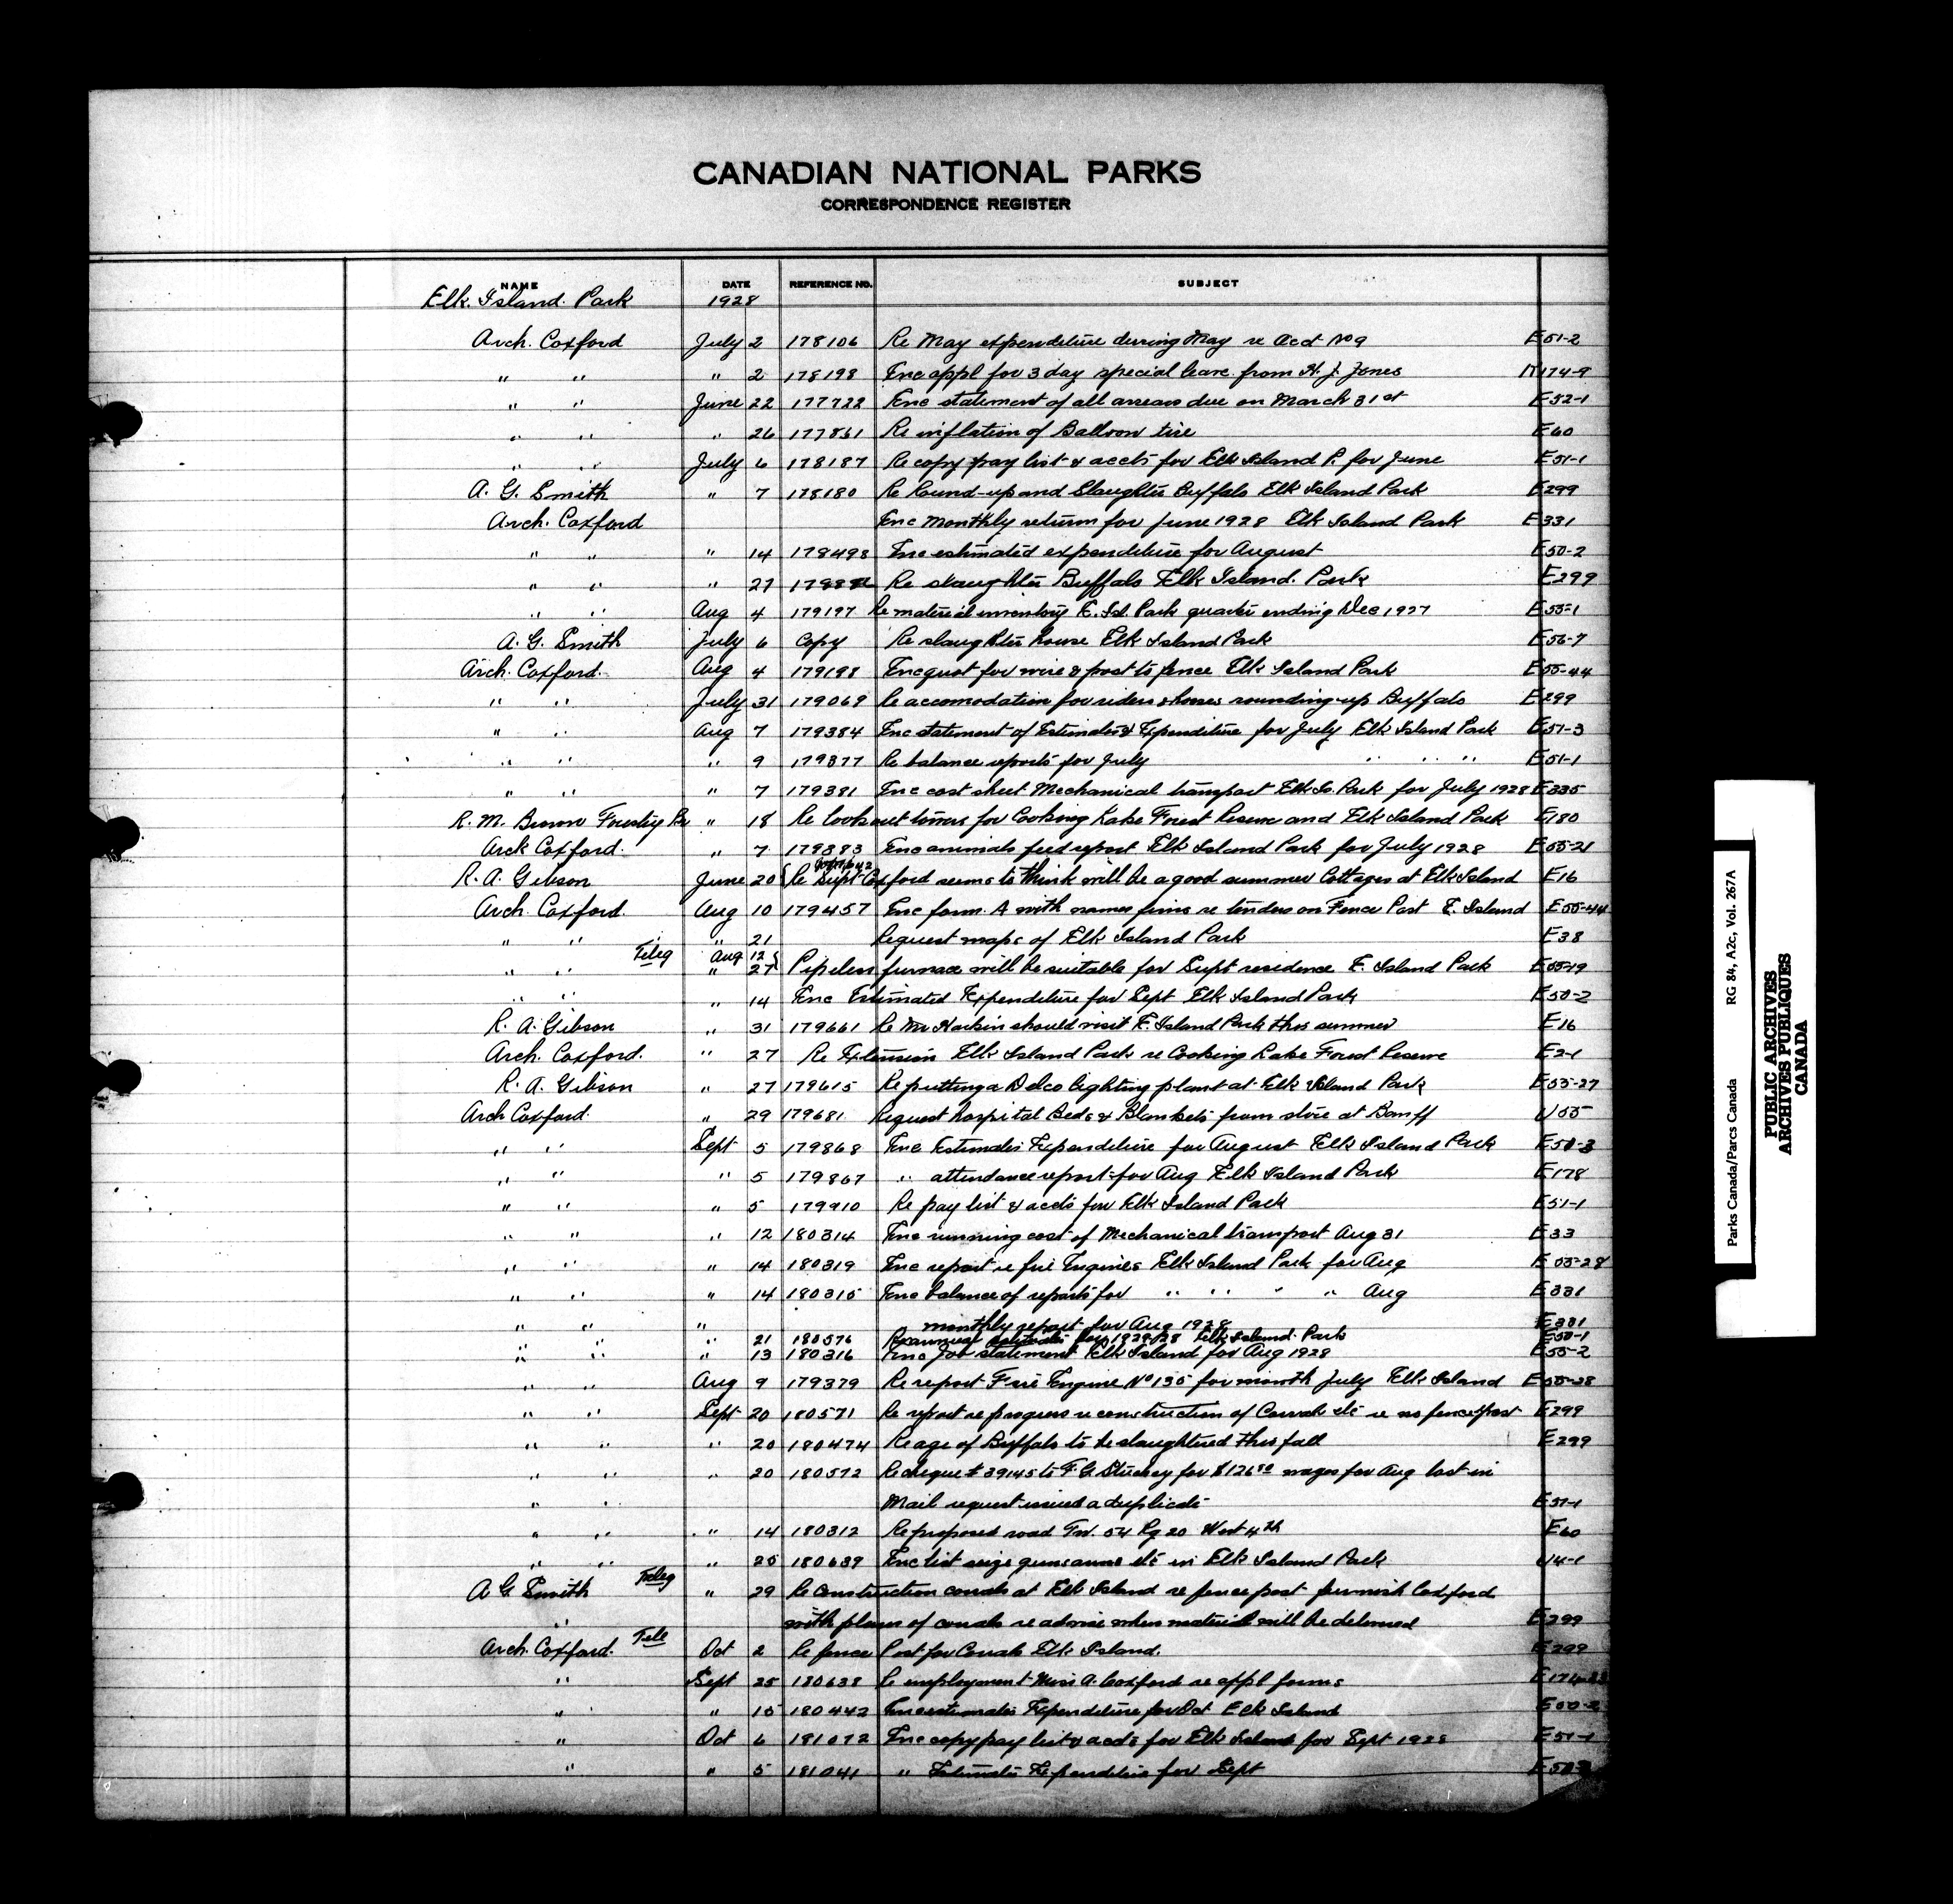 CANADIAN NATIONAL PARKS
CORRESPONDENCE REGISTER
NAME DATE REFERENCE NO. SUBJECT
Elk. Island. Park 1928
Arch. Coxford July 2 178106 Re May expenditure during May re Acct No 9 E51-2
" " " 2 178198 Enc appl for 3 day special leave from H. J. Jones 174-9
" " June 22 177722 Enc statement of all arrears due on March 31st E52-1
" " " 26 177861 Re inflation of Balloon tire E60
" " July 6 178187 Re copy pay list & accts for Elk Island P. for June E51-1
A. G. Smith " 7 178180 Re Round-up and Slaughter Buffalo Elk Island Park E299
Arch. Coxford Enc Monthly return for June 1928 Elk Island Park E331
" " " 14 178498 Enc estimated expenditure for August E50-2
" " " 27 Re slaughter Buffalo Elk Island. Park E299
" " Aug 4 179197 Re material inventory E. Isl. Park quarter ending Dec 1927 E55-1
A. G. Smith July 6 Copy Re slaughter house Elk Island Park E56-7
Arch. Coxford. Aug 4 179198 Enc quot for wire & post to fence Elk Island Park E55-44
" " July 31 179069 Re accomodation for riders & horses rounding-up Buffalo E299
" " Aug 7 179384 Enc statement of Estimates & Expenditure for July Elk Island Park E51-3
" " " 9 179377 Re balance reports for July " " " E51-1
" " " 7 179381 Enc cost sheet Mechanical transport Elk Is. Park for July 1928 E335
R. M. Brown Forestry Br " 18 Re lookout towers for Cooking Lake Forest Reserve and Elk Island Park E180
Arch Coxford. " 7 179383 Enc animals feed report Elk Island Park for July 1928 E55-21
R. A. Gibson June 20 Re Supt Coxford seems to think will be a good summer Cottages at Elk Island E16
Arch. Coxford. Aug 10 179457 Enc form. A with names firms re tenders on Fence Post E. Island E55-44
" " " 21 Request maps of Elk Island Park E38
" " Teleg Aug 12
" 27 Pipeless furnace will be suitable for Supt residence E. Island Park E55-19
" " " 14 Enc Estimated Expenditure for Sept Elk Island Park E50-2
R. A. Gibson " 31 179661 Re Mr Harkin should visit E. Island Park this summer E16
Arch. Coxford. " 27 Re Extension Elk Island Park re Cooking Lake Forest Reserve E2-1
R. A. Gibson " 27 179615 Re putting a Delco lighting plant at Elk Island Park E55-27
Arch Coxford. " 29 179681 Request hospital Beds & Blankets from store at Banff U55
" " Sept 5 179868 Enc Estimates Expenditure for August Elk Island Park E50-3
" " " 5 179867 " attendance report for Aug Elk Island Park E178
" " " 5 179910 Re pay list & accts for Elk Island Park E51-1
" " " 12 180314 Enc running cost of Mechanical transport Aug 31 E33
" " " 14 180319 Enc report re fire Engines Elk Island Park for Aug E55-28
" " " 14 180315 Enc balance of reports for " " " " Aug E331
" " " monthly report for Aug 1928 E331
" " " 21 180576 Re annual estimates for 1929/28 Elk Island. Park E50-1
" " " 13 180316 Enc Job statement Elk Island for Aug 1928 E55-2
" " Aug 9 179379 Re report Fire Engine No 135 for month July Elk Island E55-28
" " Sept 20 180571 Re report re progress re construction of Corrals etc re no fence post E299
" " " 20 180474 Re age of Buffalo to be slaughtered this fall E299
" " " 20 180572 Re cheque # 39145 to F. G. for $126.50 wages for Aug lost in
" " Mail request issued a duplicate E51-1
" " " 14 180312 Re proposed road Tw. 54 Rg 20 West 4th E60
" " " 25 180639 Enc list seize guns arms etc in Elk Island Park U4-1
A G Smith Teleg " 29 Re Construction corrals at Elk Island re fence post furnish Coxford
" with plans of corrals re advise when material will be delivered E299
Arch. Coxford. Tele Oct 2 Re fence Post for Corrals Elk Island. E299
" Sept 25 180638 Re employment Miss A. Coxford re appl forms
" " 15 180442 Enc estimates Expenditure for Oct Elk Island E50-2
" Oct 6 181072 Enc copy pay list & accts for Elk Island for Sept 1928 E51-1
" " 5 181041 " Estimates Expenditure for Sept
Parks Canada/Parcs Canada RG 84, A2c, Vol. 267A
PUBLIC ARCHIVES
ARCHIVES PUBLIQUES
CANADA